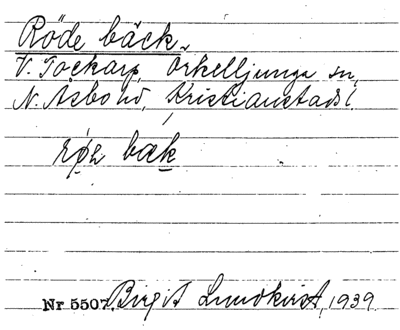 Röde bäck
V. Tockarp, Örkelljunga sn,
N. Åsbo hd, Kristianstads l.
bæk
Nr 5507. Birgit Lundkvist, 1939.